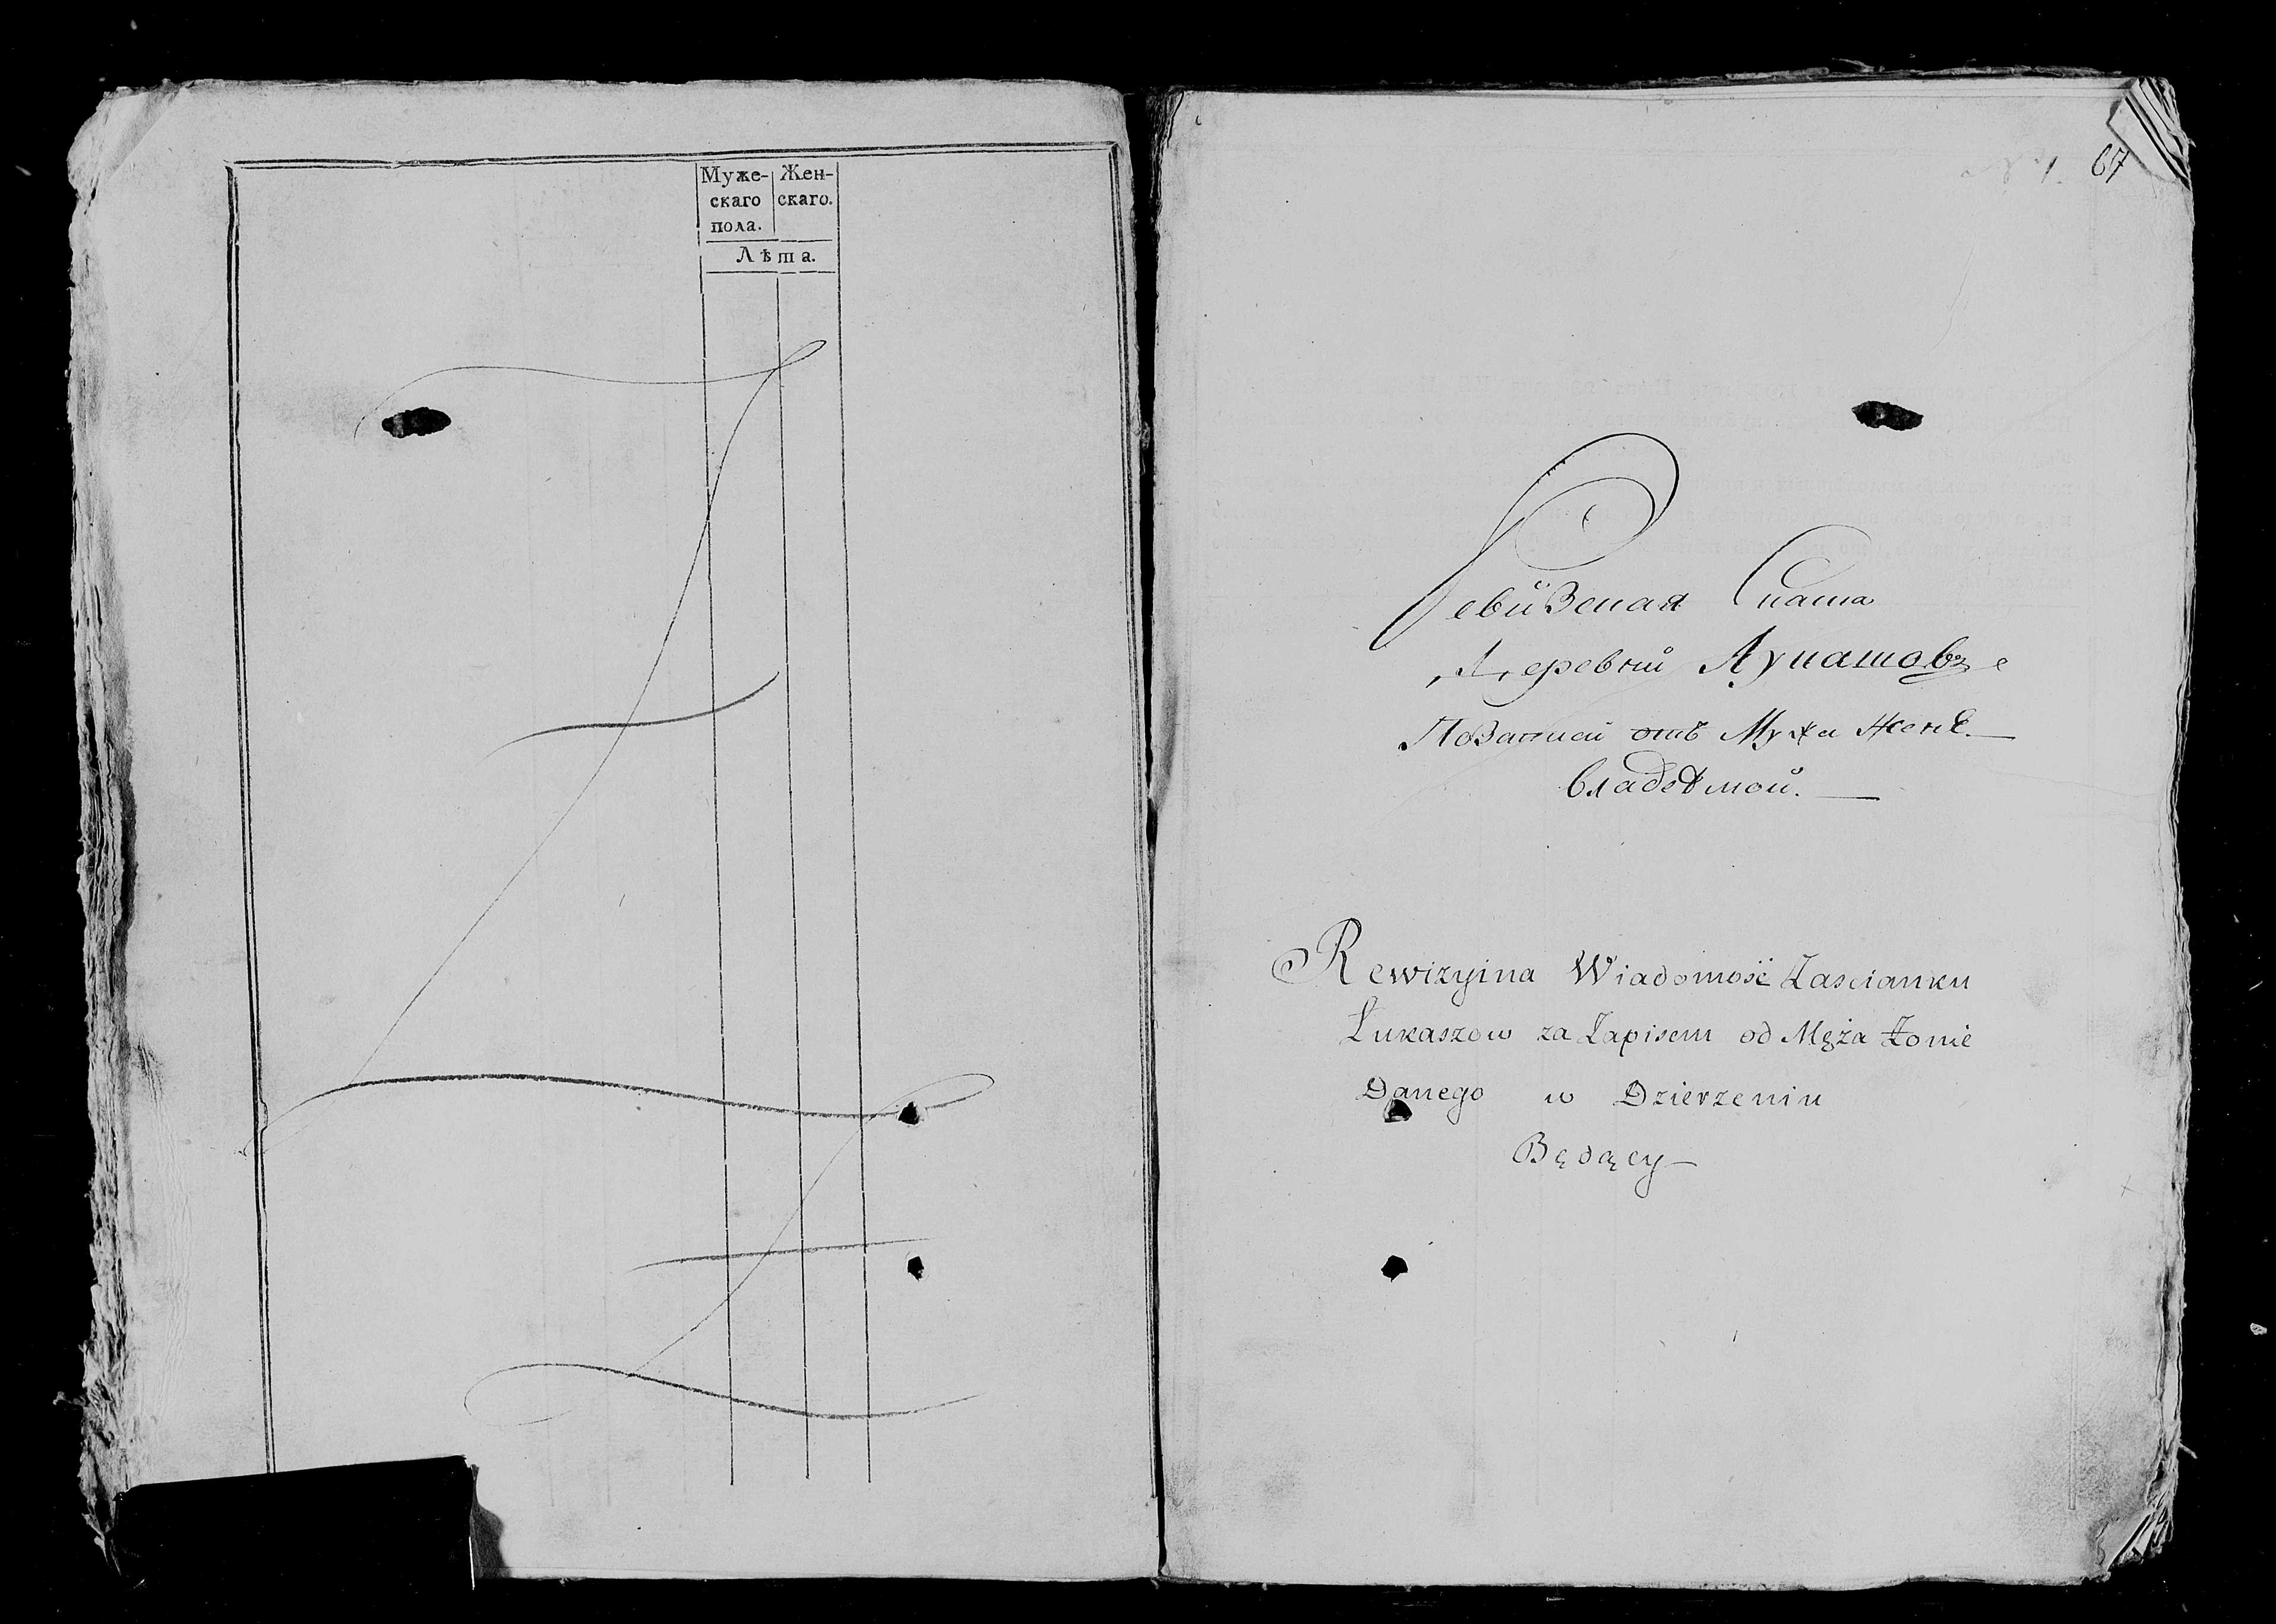 Муже- Жен-
скаго скаго.
пола.
Лѣта.
№ 1. 67
Ревизская Скаска
Деревни Лукашовъ
По Записи отъ Мужа Женѣ
владѣмой.
Rewizyina Wiadomość Zascianku
Łukaszow za Zapisem od Męża Żonie
Danego w Dzierzeniu
Będący